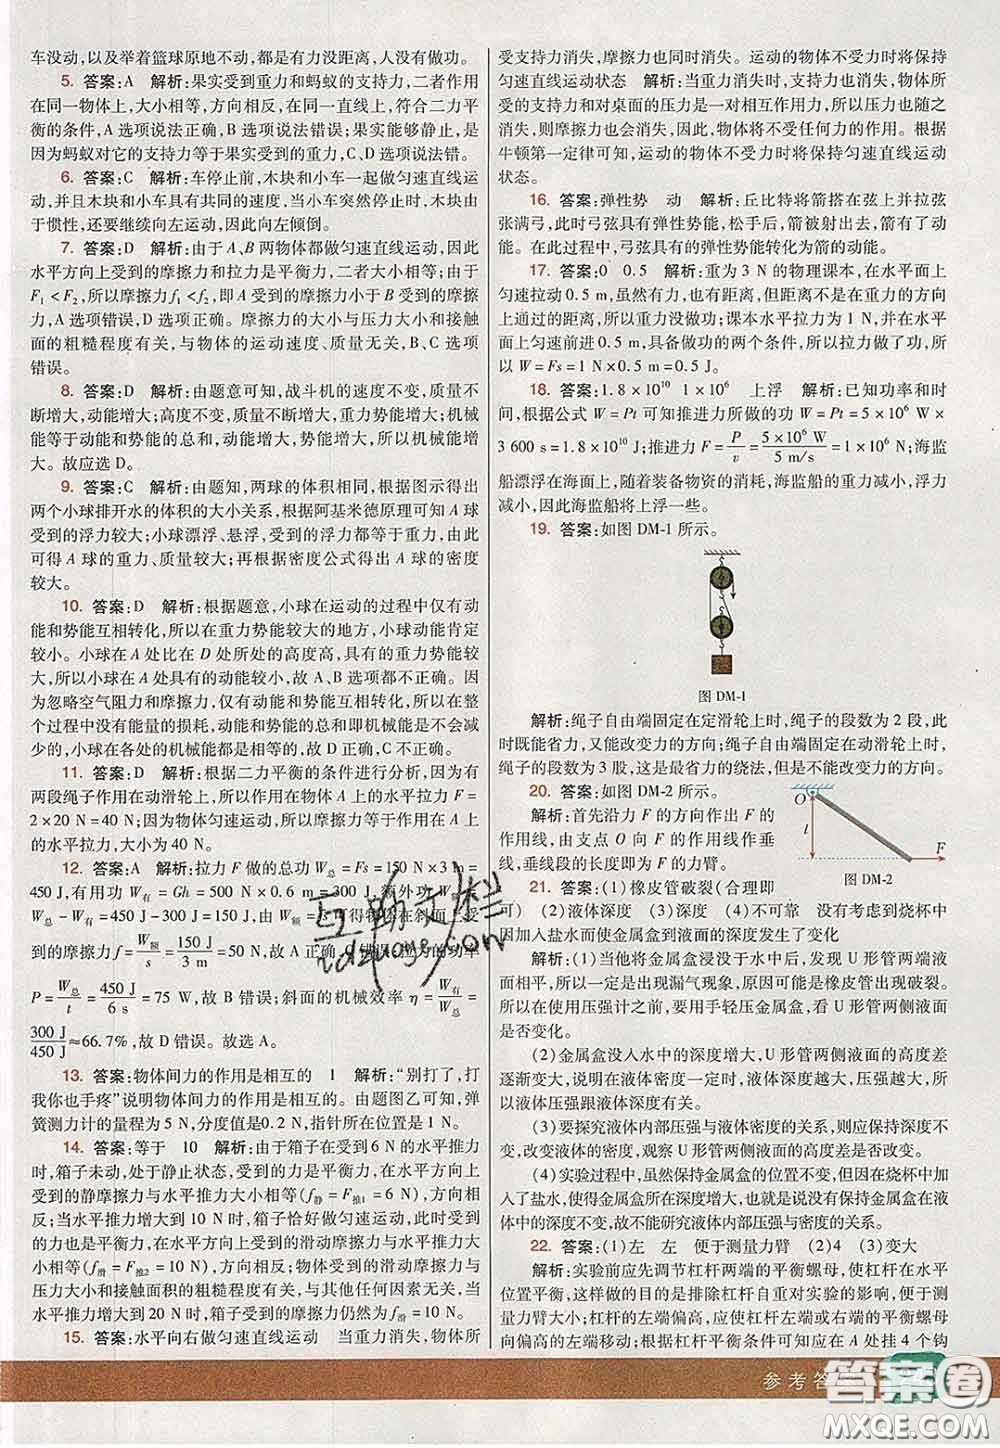 车没动,以及举着篮球原地不动,都是有力没距离,人没有做功。
5. 答案:A 解析:果实受到重力和蚂蚁的支持力,二者作用
在同一物体上,大小相等,方向相反,在同一直线上,符合二力平
衡的条件,A 选项说法正确,B 选项说法错误;果实能够静止,是
因为蚂蚁对它的支持力等于果实受到的重力,C、D 选项说法错。
6. 答案:C 解析:车停止前,木块和小车一起做匀速直线运
动,并且木块和小车具有共同的速度,当小车突然停止时,木块由
于惯性,还要继续向左运动,因此向左倾倒。
7. 答案:D 解析:由于 A、B 两物体都做匀速直线运动,因此
水平方向上受到的摩擦力和拉力是平衡力,二者大小相等;由于
F₁<F₂,所以摩擦力 f₁<f₂,即 A 受到的摩擦力小于 B 受到的摩
擦力,A 选项错误,D 选项正确。摩擦力的大小与压力大小和接触
面的粗糙程度有关,与物体的运动速度、质量无关,B、C 选项
错误。
8. 答案:D 解析:由题意可知,战斗机的速度不变,质量不
断增大,动能增大;高度不变,质量不断增大,重力势能增大;机械
能等于动能和势能的总和,动能增大,势能增大,所以机械能增
大。故应选 D。
9. 答案:C 解析:由题知,两球的体积相同,根据图示得出
两个小球排开水的体积的大小关系,根据阿基米德原理可知 A 球
受到的浮力较大;小球漂浮、悬浮,受到的浮力都等于重力,由此
可得 A 球的重力较大;再根据密度公式得出 A 球的密度
较大。
10. 答案:D 解析:根据题意,小球在运动的过程中仅有动
能和势能互相转化,所以在重力势能较大的地方,小球动能肯定
较小。小球在 A 处比在 D 处所处的高度高,具有的重力势能较大,
所以小球在 A 处具有的动能较小,故 A、B 选项不正确。
因为忽略空气阻力和摩擦力,仅有动能和势能互相转化,所以在
整个过程中没有能量的损耗,动能和势能的总和即机械能是不会减
少的,小球在各处的机械能都是相等的,故 D 正确,C 错误。
11. 答案:D 解析:根据二力平衡的条件进行分析,因为有
两段绳子作用在动滑轮上,所以作用在物体 A 上的水平拉力 F=
2×20 N=40 N;因为物体匀速运动,所以摩擦力等于作用在 A 上
的水平拉力,大小为 40 N。
12. 答案:A 解析:拉力 F 做的总功 W总=Fs=150 N×3 m=
450 J,有用功 W有=Gh=500 N×0.6 m=300 J,额外功 W额=
W总-W有=450 J-300 J=150 J,由 W额=fs 可得物体在斜面上受
到的摩擦力 f=W额/s=150 J/3 m=50 N,故 A 正确,C 错误;拉力的功率
P=W总/t=450 J/6 s=75 W,故 B 错误;斜面的机械效率 η=W有/W总=
300 J/450 J≈66.7%,故 D 错误。故选 A。
13. 答案:物体间力的作用是相互的 1 解析:“别打了,打
我你也手疼”说明物体间力的作用是相互的。由题图乙可知,弹
簧测力计的量程为 5 N,分度值是0.2 N,指针所在位置是 1 N。
14. 答案:等于 10 解析:由于箱子在受到 6 N 的水平推力
时,箱子未动,处于静止状态,受到的力是平衡力,在水平方向上受
到的静摩擦力与水平推力大小相等(f静=F推1=6 N),方向相
反;当水平推力增大到 10 N 时,箱子恰好做匀速运动,此时受到的
力也为平衡力,在水平方向上受到的滑动摩擦力与水平推力大
小相等(f滑=F推2=10 N),方向相反。因为滑动摩擦力大小与
压力大小和接触面积的粗糙程度有关,与其他任何因素无关,所以
当水平推力增大到 20 N 时,箱子受到的摩擦力仍然为 f滑=10 N。
15. 答案:水平向右做匀速直线运动 当重力消失,物体所
受支持力消失,摩擦力也同时消失。运动的物体不受力时将保持
匀速直线运动状态 解析:当重力消失时,支持力也消失,而物体
所受的支持力和对桌面的压力是一对相互作用力,所以压力也随之
消失,则摩擦力也会消失,因此,物体将不受任何力的作用。根据
牛顿第一定律可知,运动的物体不受力时将保持匀速直线运动
状态。
16. 答案:弹性势 动 解析:丘比特将箭搭在弦上并拉弦
张满弓,此时弓弦具有弹性势能,松手后,箭被射出去,箭有了动
能。在此过程中,弓弦具有的弹性势能转化为箭的动能。
17. 答案:0 0.5 解析:重为 3 N 的物理课本,在水平面上
匀速拉动 0.5 m,虽然有力,也有距离,但距离不是在重力的方向
上通过的距离,所以重力没做功;课本水平拉力为 1 N,并在水平面
上匀速前进 0.5 m,具备做功的两个条件,所以拉力做了功,所
以 W=Fs=1 N×0.5 m=0.5 J。
18. 答案:1.8×10¹⁰ 1×10⁶ 上浮 解析:已知功率和时
间,根据公式 W=Pt 可知推进力所做的功 W=Pt=5×10⁶ W×
3 600 s=1.8×10¹⁰ J;推进力 F=P/v=5×10⁶ W/5 m/s=1×10⁶ N;海监
船漂浮在海面上,随着装备物资的消耗,海监船的重力减小,浮力
减小,因此海监船将上浮一些。
19. 答案:如图 DM-1 所示。
图 DM-1
解析:绳子自由端固定在定滑轮上时,绳子的段数为 2 段,此
时既能省力,又能改变力的方向;绳子自由端固定在动滑轮上时,
绳子的段数为 3 股,这是最省力的绕法,但是不能改变力的方向。
20. 答案:如图 DM-2 所示。
解析:首先沿力 F 的方向作出力 F 的
作用线,由支点 O 向 F 的作用线作垂
线,垂线段的长度即为 F 的力臂。
O
l
F
图 DM-2
21. 答案:(1)橡皮管破裂(合理即
可) (2)液体深度 (3)深度 (4)不可靠 没有考虑到烧杯中
因加入盐水而使金属盒到液面的深度发生了变化
解析:(1)当他将金属盒浸没于水中后,发现 U 形管两端液
面相平,所以一定是出现漏气现象,原因可能是橡皮管出现破裂。
所以在使用压强计之前,要用手轻压金属盒,看 U 形管两侧液面
是否变化。
(2)金属盒没入水中的深度增大,U 形管两侧液面的高度差
逐渐变大,说明在液体密度一定时,液体深度越大,压强越大,所以
液体压强跟液体深度有关。
(3)要探究液体内部压强与液体密度的关系,则应保持深度不
变,改变液体的密度,观察 U 形管两侧液面的高度差是否改变。
(4)实验过程中,虽然保持金属盒的位置不变,但因在烧杯中加
入了盐水,使得金属盒所在深度增大,也就是说没有保持金属盒在液
体中的深度不变,故不能研究液体内部压强与密度的关系。
22. 答案:(1)左 左 便于测量力臂 (2)4 (3)变大
解析:实验前应先调节杠杆两端的平衡螺母,使杠杆在水平
位置平衡,这样做的目的是排除杠杆自重对实验的影响,便于测
量力臂大小;杠杆的左端偏高,应使杠杆左端或右端的平衡螺母
向偏高的左端移动;根据杠杆平衡条件可知应在 A 处挂 4 个钩
参考答
答案圈
MXQE.COM